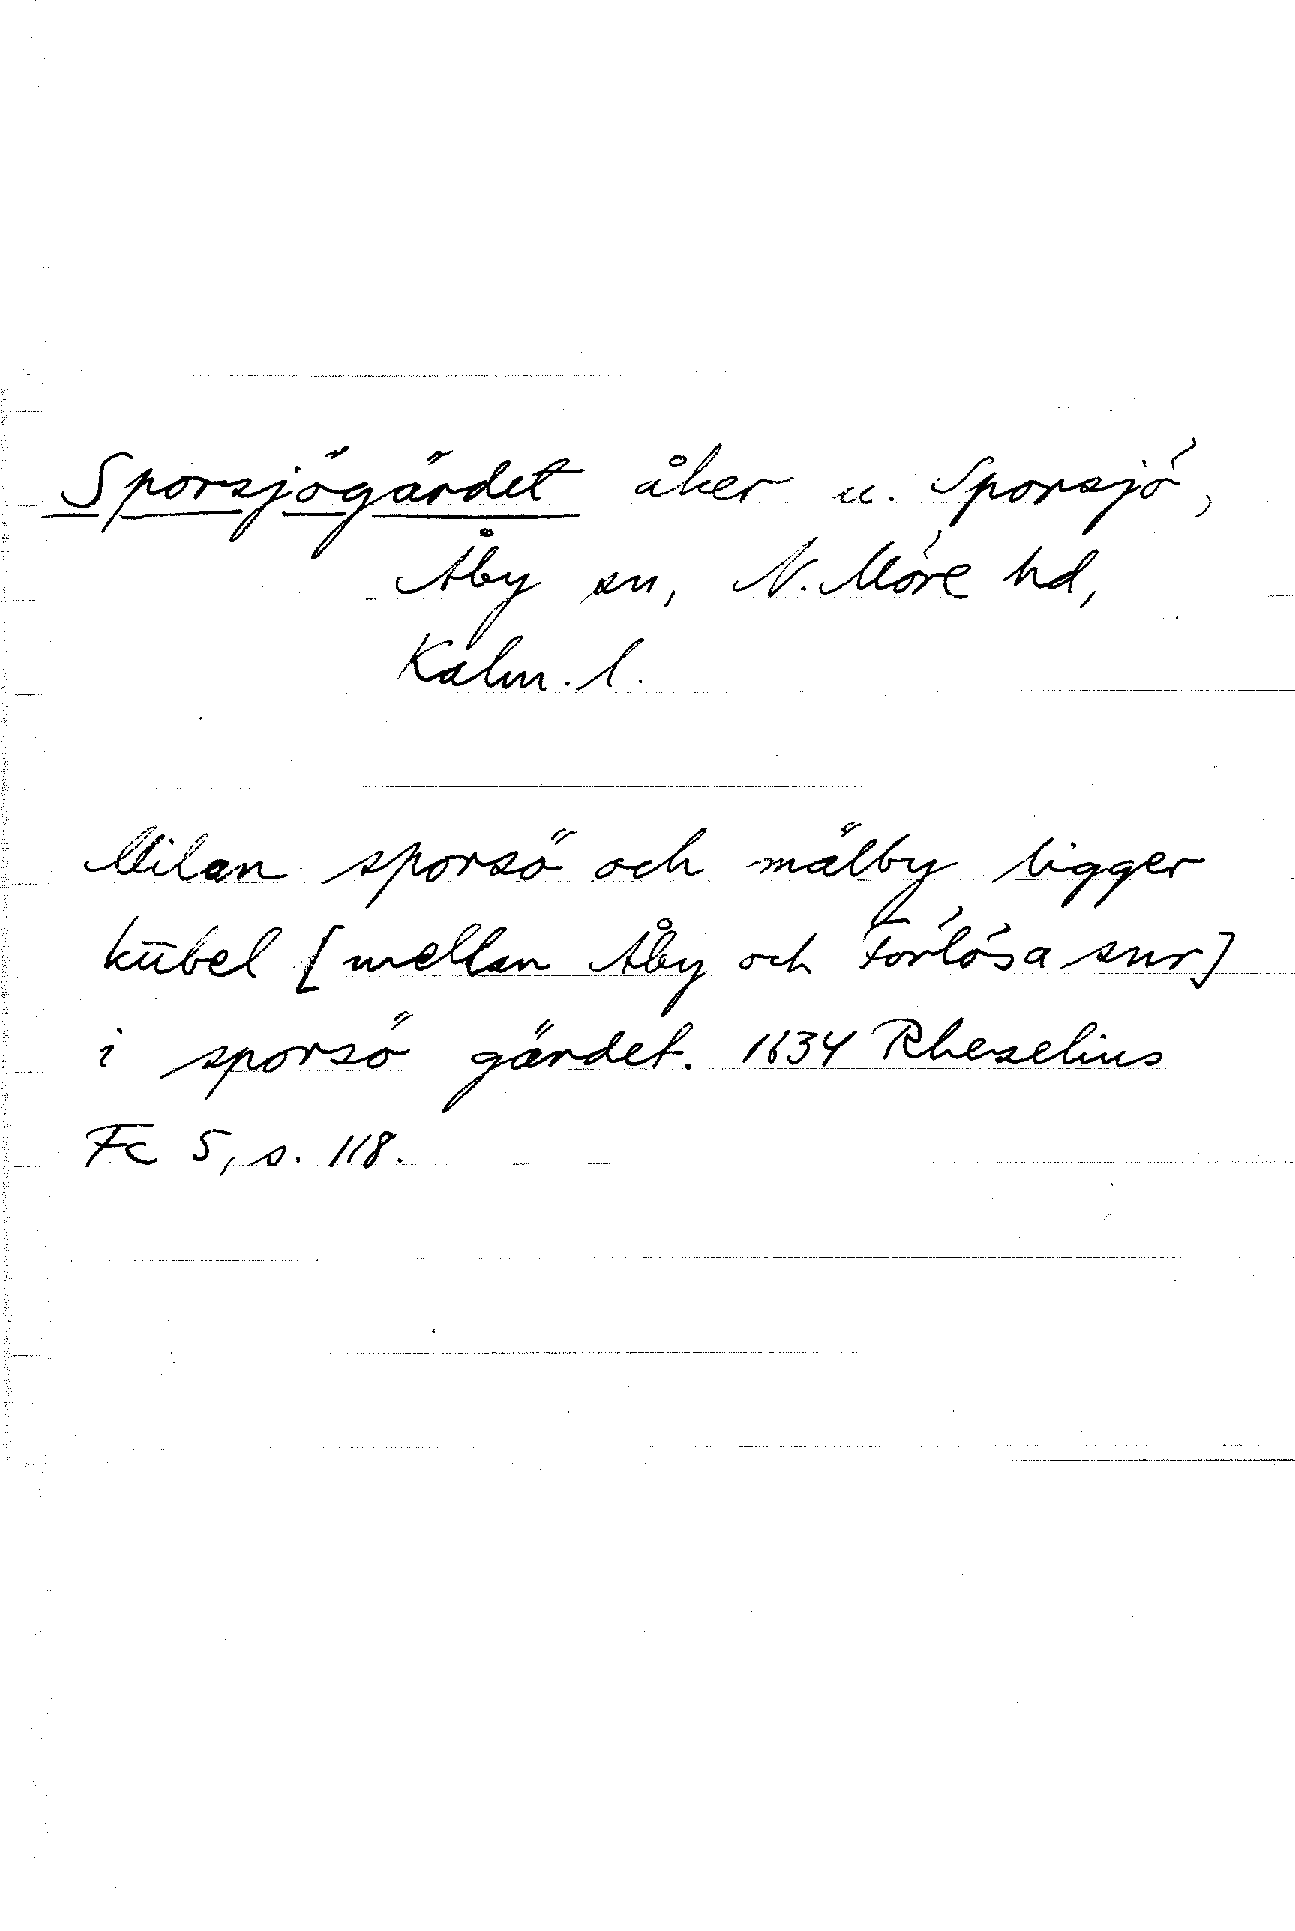 Sporsjögärdet åker u. Sporsjö,
Åby sn, N. Möre hd,
Kalm. l.
Milan sporsö och mälby ligger
kübel [mellan Åby och Förlösa snr]
i sporsö gärdet. 1634 Rhezelius
Fc 5, s. 118.